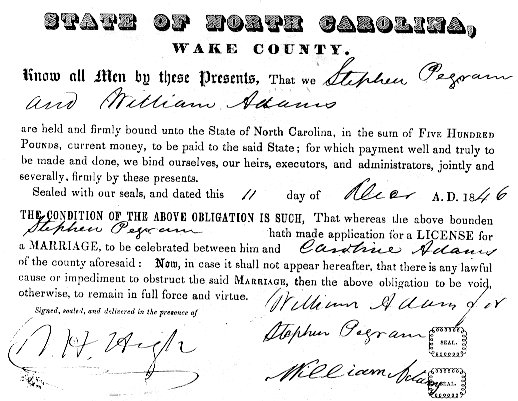 STATE OF NORTH CAROLINA,
WAKE COUNTY.
Know all Men by these Presents, That we Stephen Pegram
and William Adams
are held and firmly bound unto the State of North Carolina, in the sum of FIVE HUNDRED
POUNDS, current money, to be paid to the said State; for which payment well and truly to
be made and done, we bind ourselves, our heirs, executors, and administrators, jointly and
severally, firmly by these presents.
Sealed with our seals, and dated this 11 day of Decr A. D. 1846
THE CONDITION OF THE ABOVE OBLIGATION IS SUCH, That whereas the above bounden
Stephen Pegram hath made application for a LICENSE for
a MARRIAGE, to be celebrated between him and Caroline Adams
of the county aforesaid: Now, in case it shall not appear hereafter, that there is any lawful
cause or impediment to obstruct the said MARRIAGE, then the above obligation to be void,
otherwise, to remain in full force and virtue.
William Adams
Signed, sealed, and delivered in the presence of
Stephen Pegram SEAL.
William Adams SEAL.